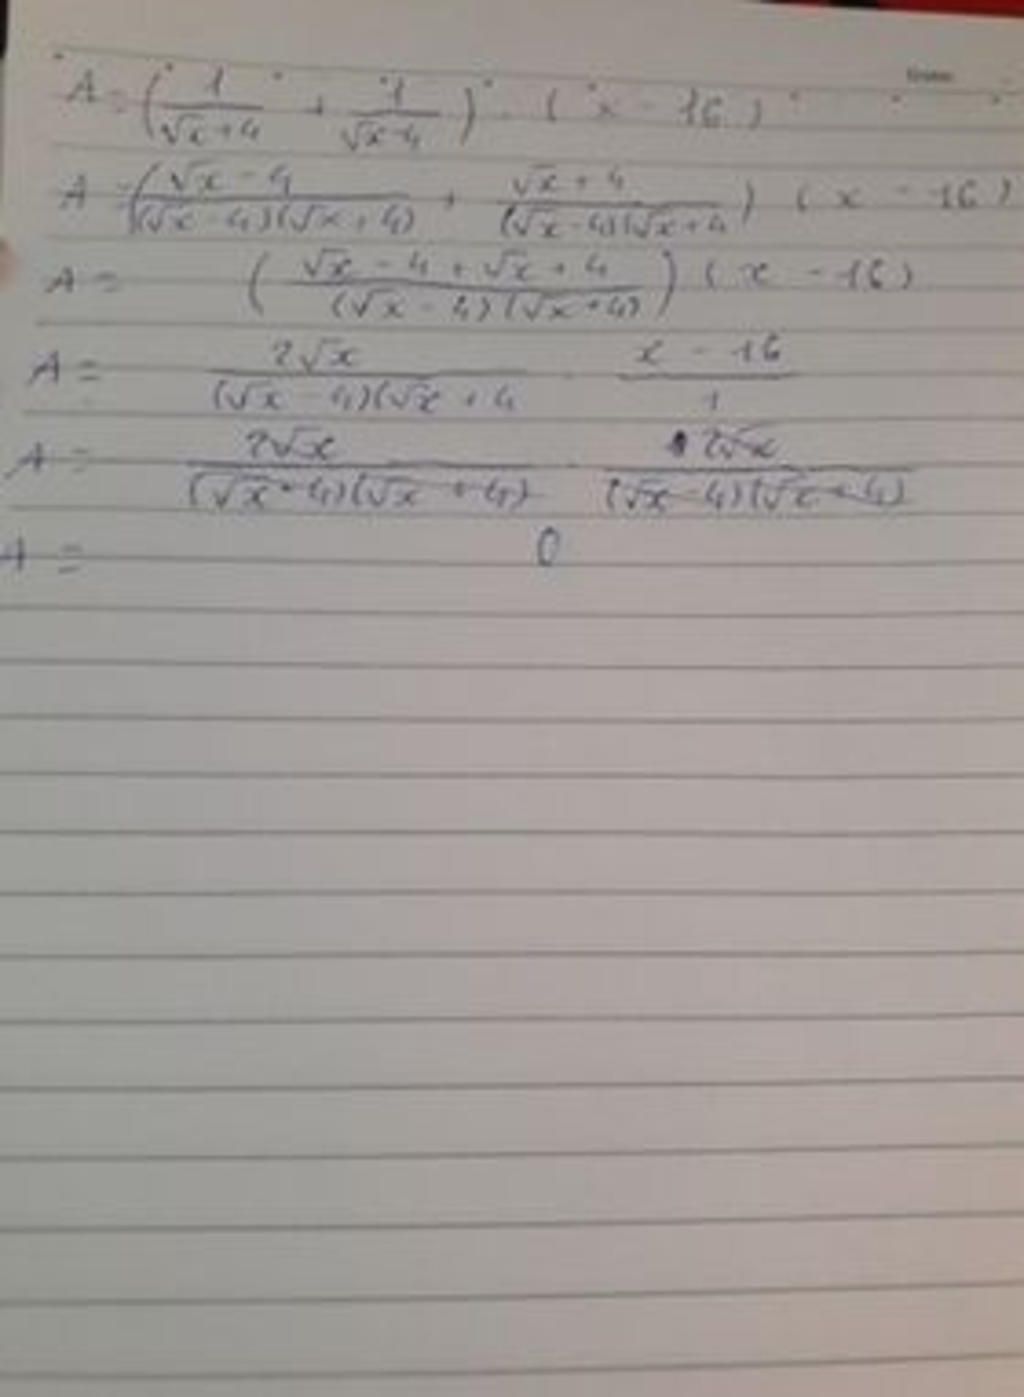 A = (1/(√x+4) + 1/(√x-4)) . (x - 16)
A = ((√x - 4)/((√x - 4)(√x + 4)) + (√x + 4)/((√x - 4)(√x + 4)) (x - 16)
A = ((√x - 4 + √x + 4)/((√x - 4)(√x + 4))) (x - 16)
A = 2√x/((√x - 4)(√x + 4) . (x - 16)/1
A = 2√x/((√x - 4)(√x + 4)) - 2√x/((√x - 4)(√x + 4))
A = 0